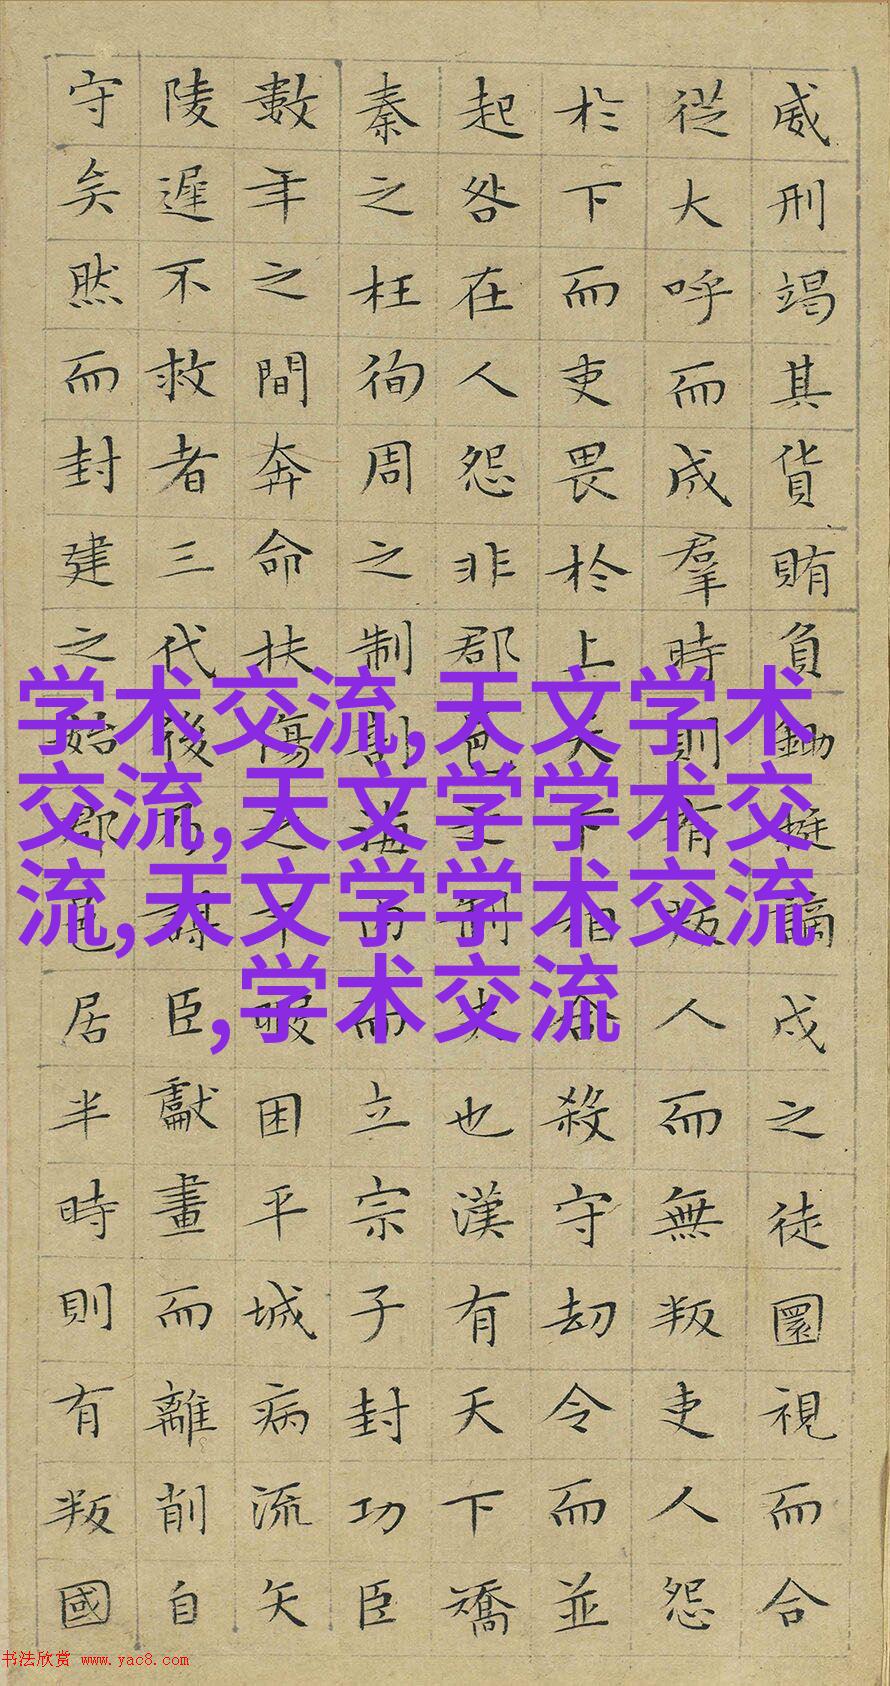 威刑竭其貨賄負鋤梃謫戍之徒圜視而合
從大呼而成羣時則有叛人而無叛吏人怨
於下而吏畏於上天下相合殺守劫令而並
起咎在人怨非郡邑之制失也漢有天下矯
秦之枉徇周之制剖海內而立宗子封功臣
數年之間奔命扶傷之不暇困平城病流矢
陵遲不救者三代後乃謀臣獻畫而離削自
守矣然而封建之始郡邑居半時則有叛國
学术交流,天文学术
交流,天文学学术交
流,天文学学术交流
,学术交流
书法欣赏 www.yac8.com